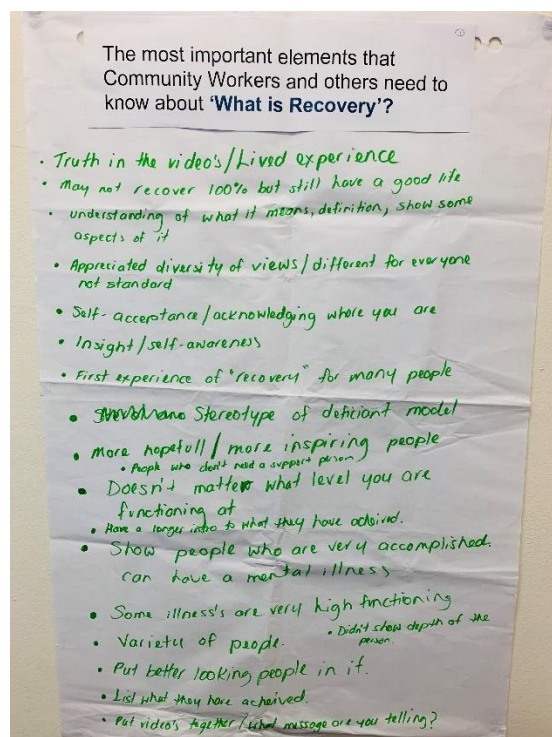 The most important elements that
Community Workers and others need to
know about ‘What is Recovery’?
• Truth in the video's/Lived experience
• May not recover 100% but still have a good life
• understanding of what it means, definition, show some
aspects of it
• Appreciated diversity of views/different for everyone
not standard
• Self-acceptance/acknowledging where you are
• Insight/self-awareness
• First experience of "recovery" for many people
• Stereotype of deficiant model
• More hopefull/more inspiring people
• People who don't need a support person
• Doesn't matter what level you are
functioning at
• Have a longer intro to what they have acheived.
• Show people who are very accomplished.
can have a mental illness
• Some illness's are very high functioning
• Variety of people.
• Didn't show depth of the
person.
• Put better looking people in it.
• List what they have acheived.
• Put video's together/what message are you telling?